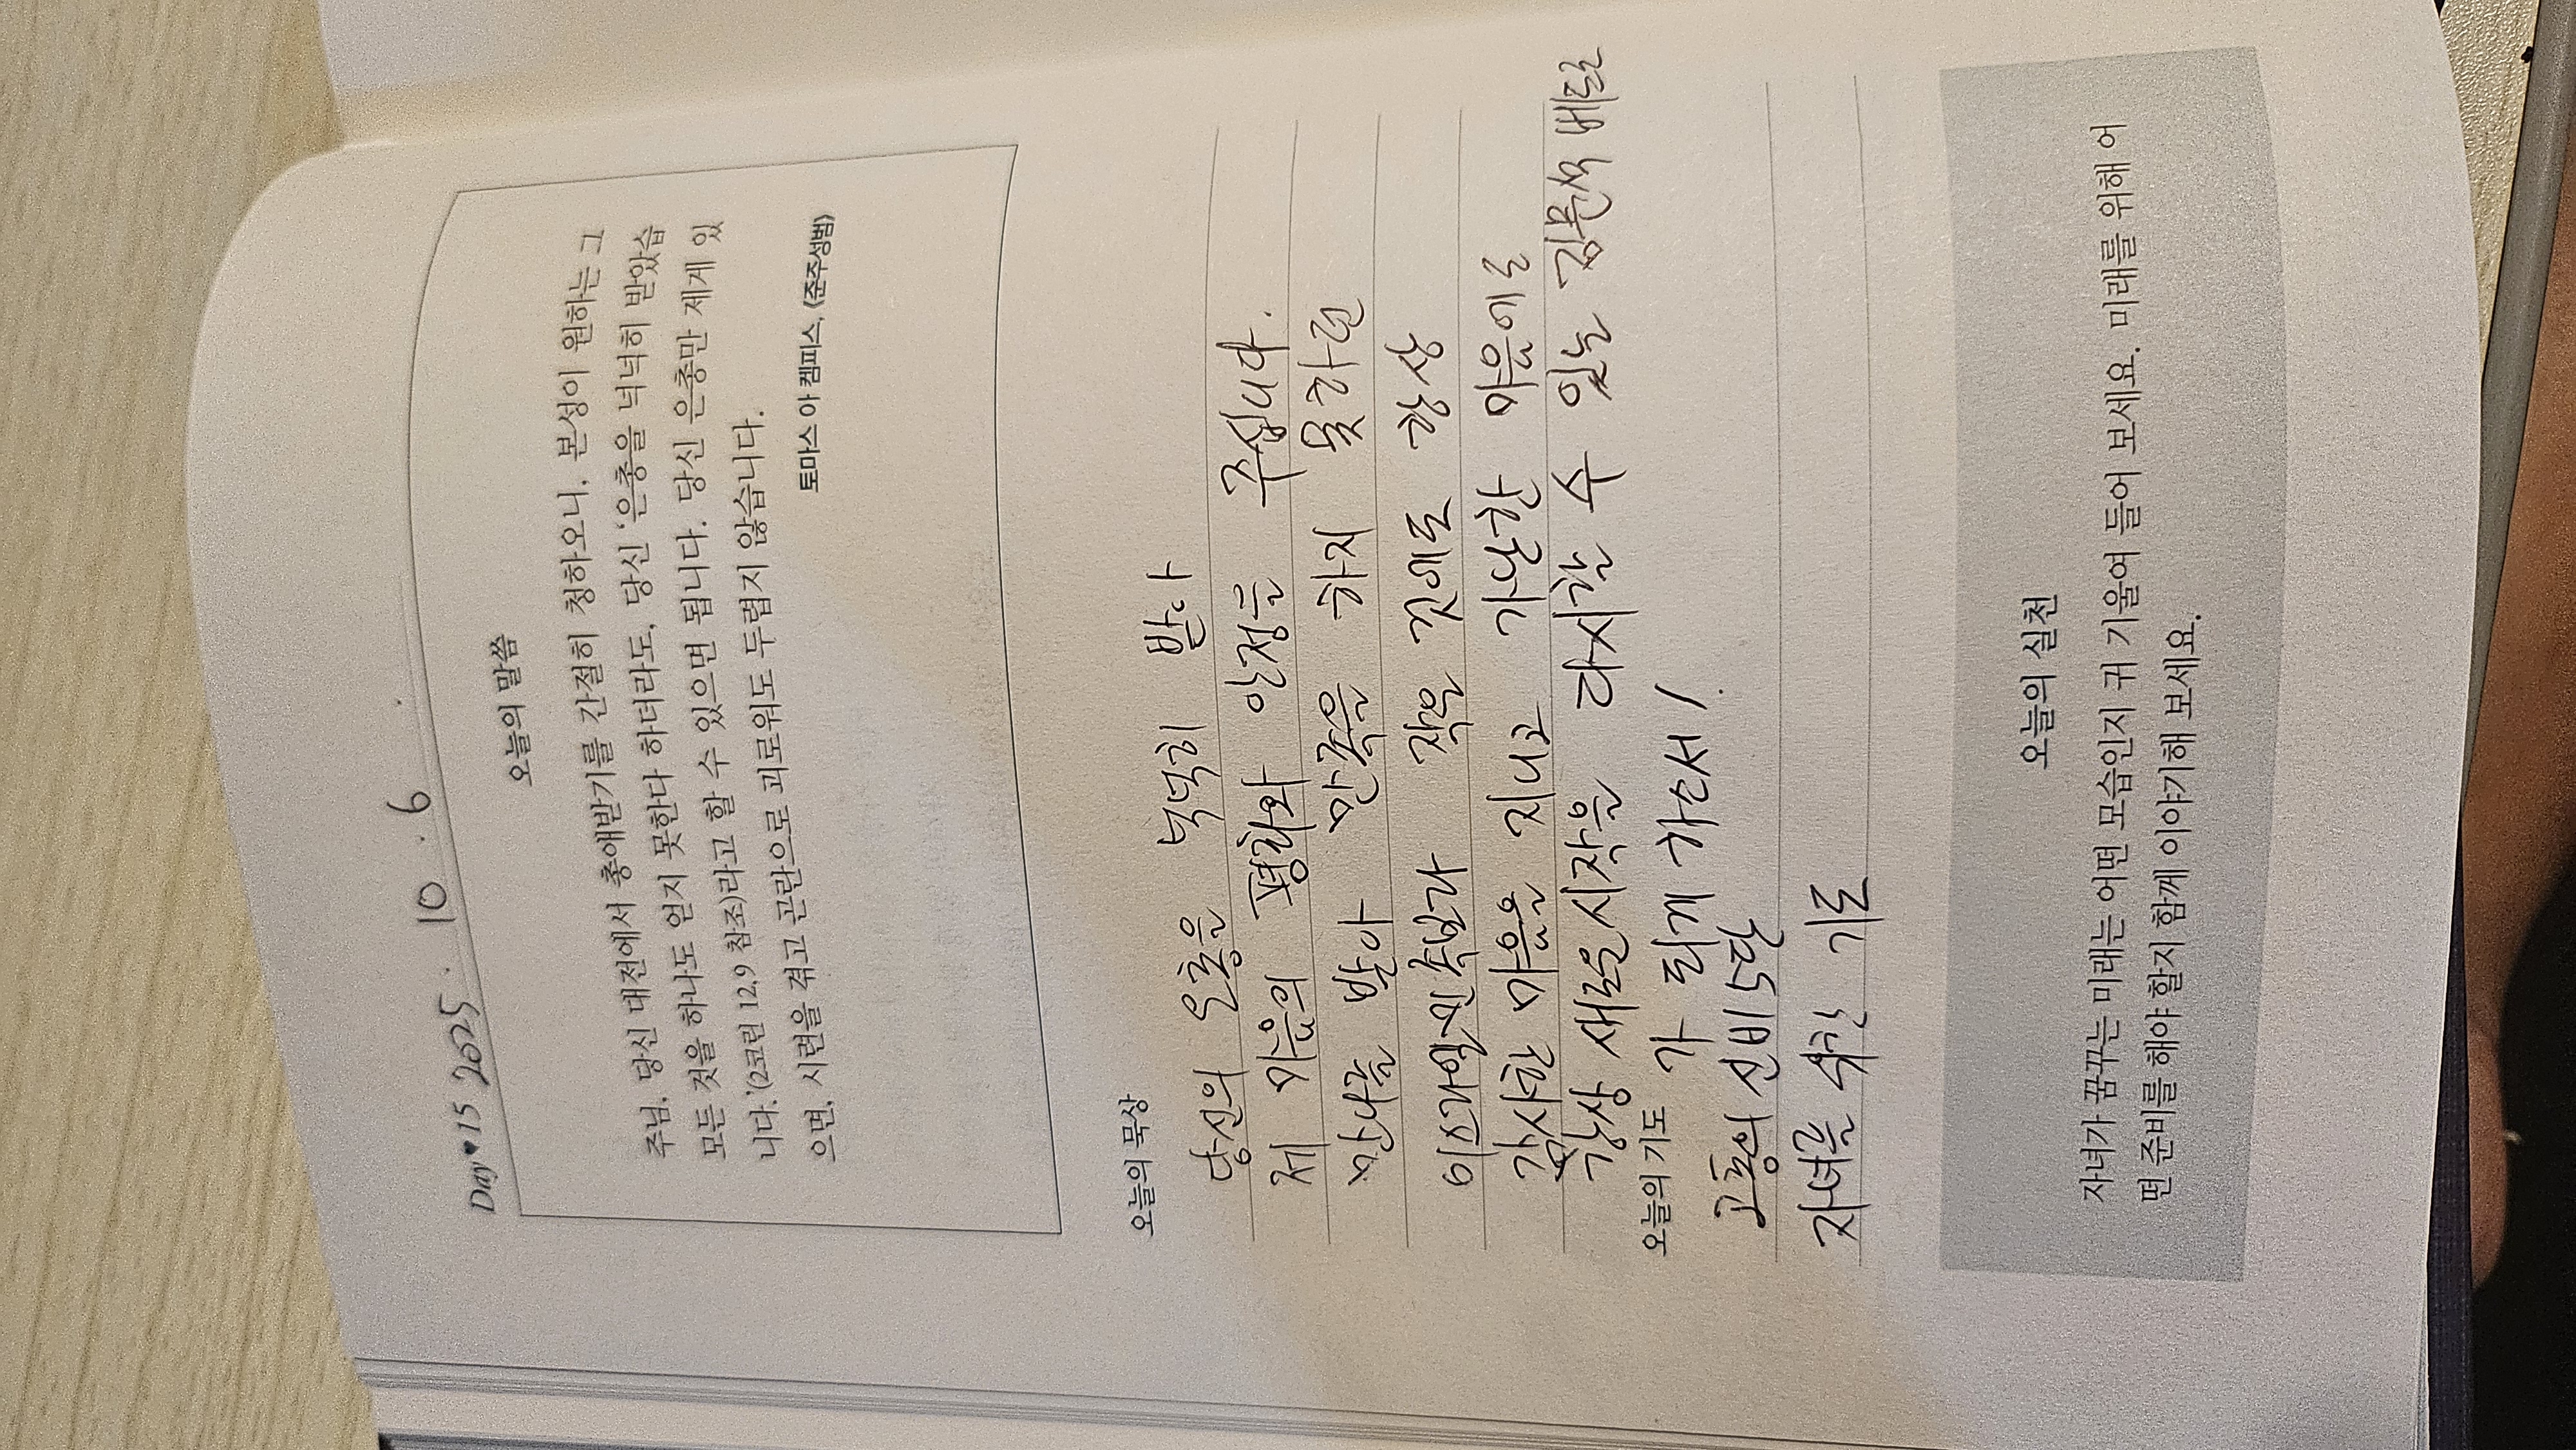 Day♥15 2025. 10. 6
오늘의 말씀
주님, 당신 대전에서 총애받기를 간절히 청하오니, 본성이 원하는 그
모든 것을 하나도 얻지 못한다 하더라도, 당신 ‘은총을 넉넉히 받았습
니다.’(2코린 12,9 참조)라고 할 수 있으면 됩니다. 당신 은총만 제게 있
으면, 시련을 겪고 곤란으로 괴로워도 두렵지 않습니다.
토마스 아 켐피스, 《준주성범》
오늘의 묵상
당신의 은총을 넉넉히 받아
제 마음의 평화와 안정을 주십니다.
만나를 받아 만족을 하지 못하련
이스라엘민족보가 작은 것에도 항상
감사한 마음을 지니고 가난한 마음에로
항상 새로운시작을 다시할 수 있는 김문석 베드로
가 되게 하소서!
오늘의 기도
고통의 신비 5단
자녀를 위한 기도
오늘의 실천
자녀가 꿈꾸는 미래는 어떤 모습인지 귀 기울여 들어 보세요. 미래를 위해 어
떤 준비를 해야 할지 함께 이야기해 보세요.